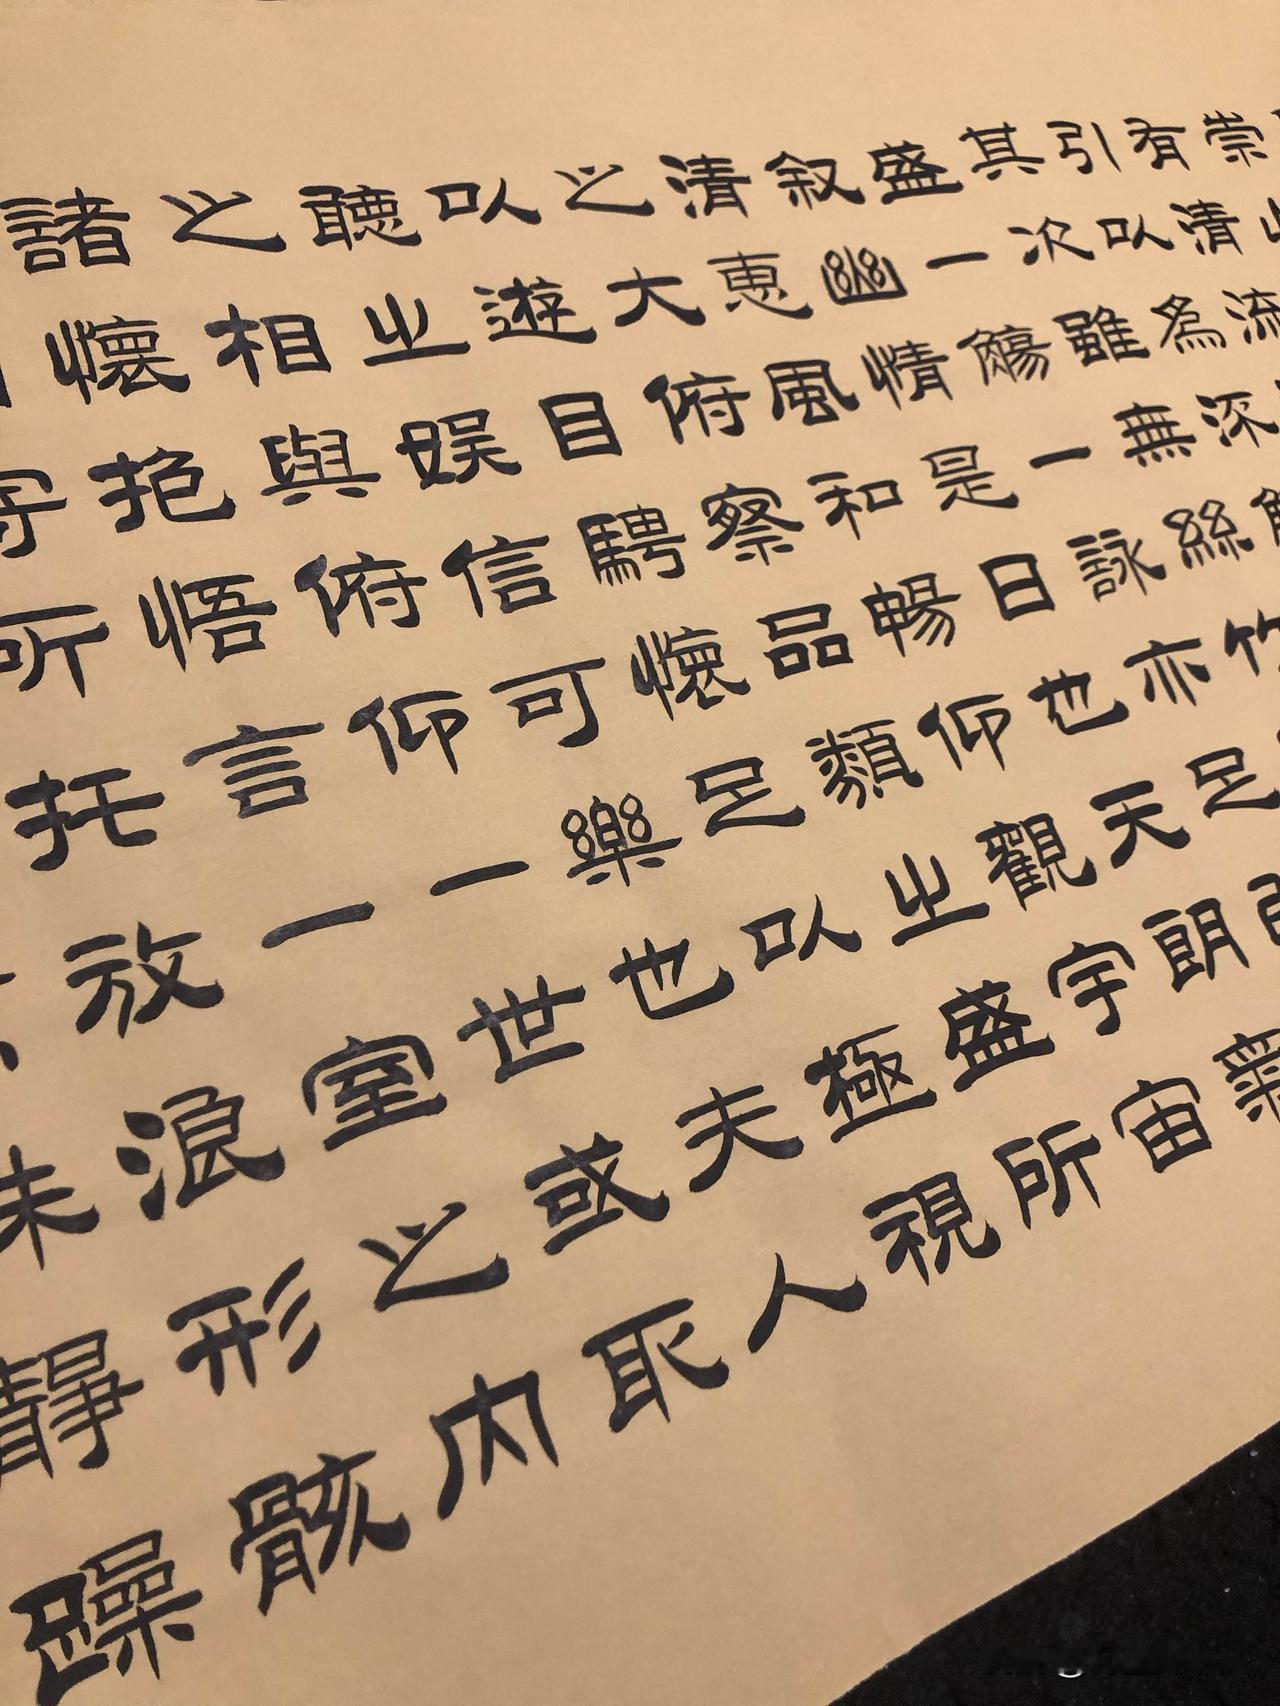 崇
有清流
引以為流觴
其次雖無絲竹
盛一觴一詠亦足
叙幽情是日也天朗氣
清惠風和暢仰觀宇宙
之大俯察品類之盛所
以遊目騁懷足以極視
聽之娛信可樂也夫人
之相與俯仰一世或取
諸懷抱悟言一室之內
所托放浪形骸
靜躁